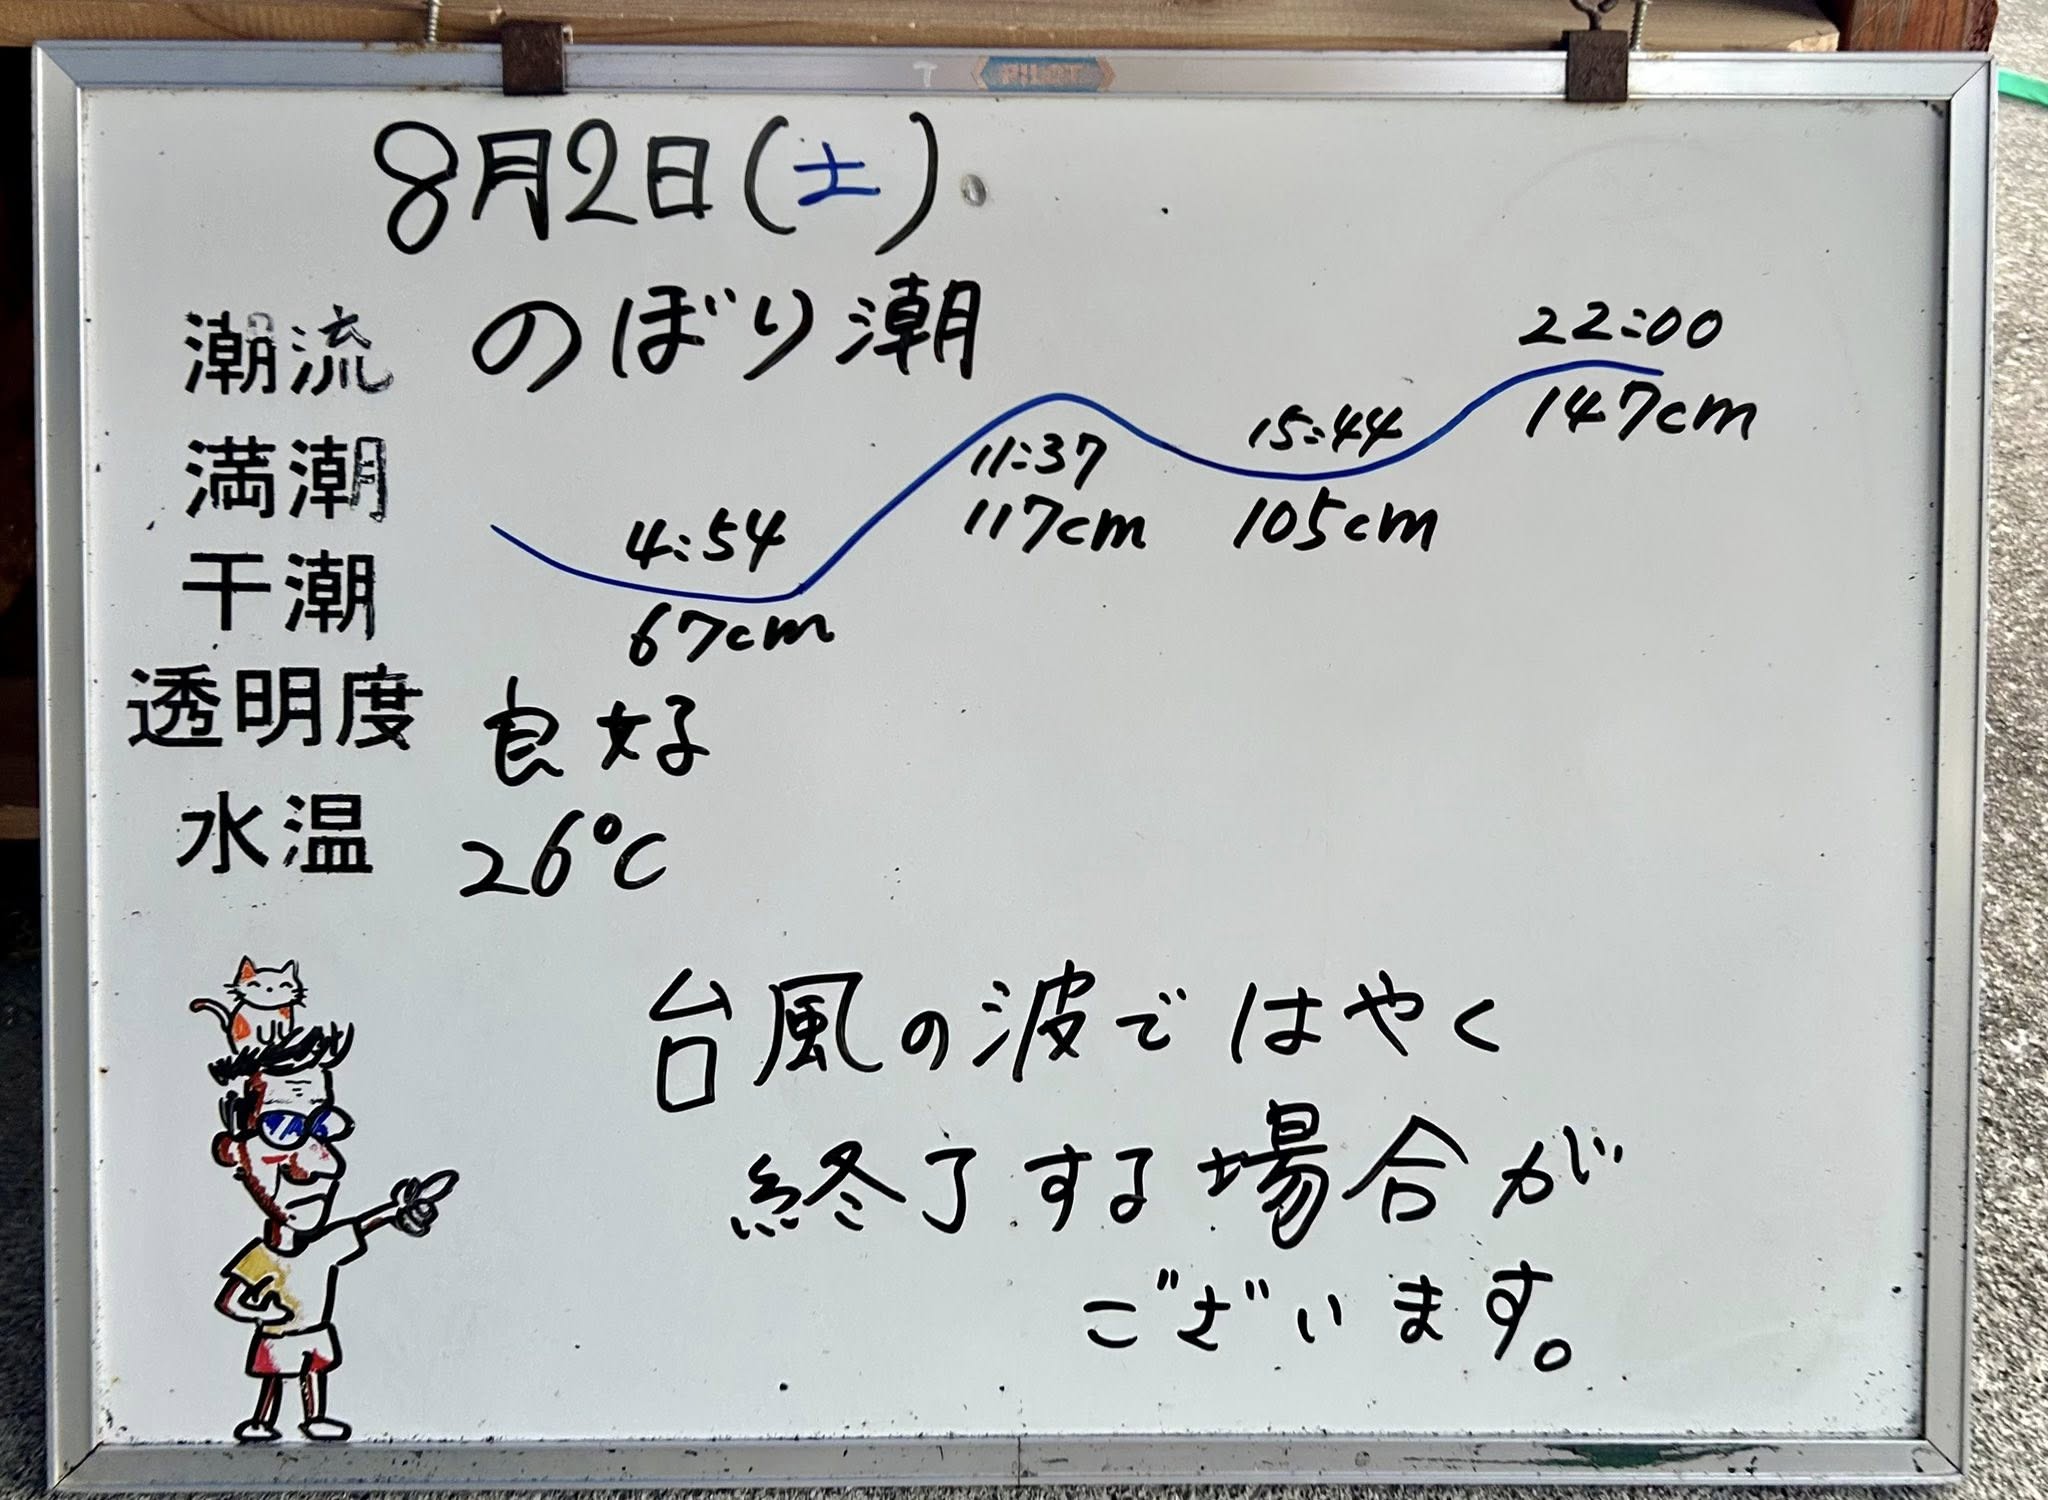 PILOT
8月2日(土)
潮流 のぼり潮
満潮
干潮
4:54
67cm
11:37
117cm
15:44
105cm
22:00
147cm
透明度 良好
水温 26℃
台風の波ではやく
終了する場合が
ございます。